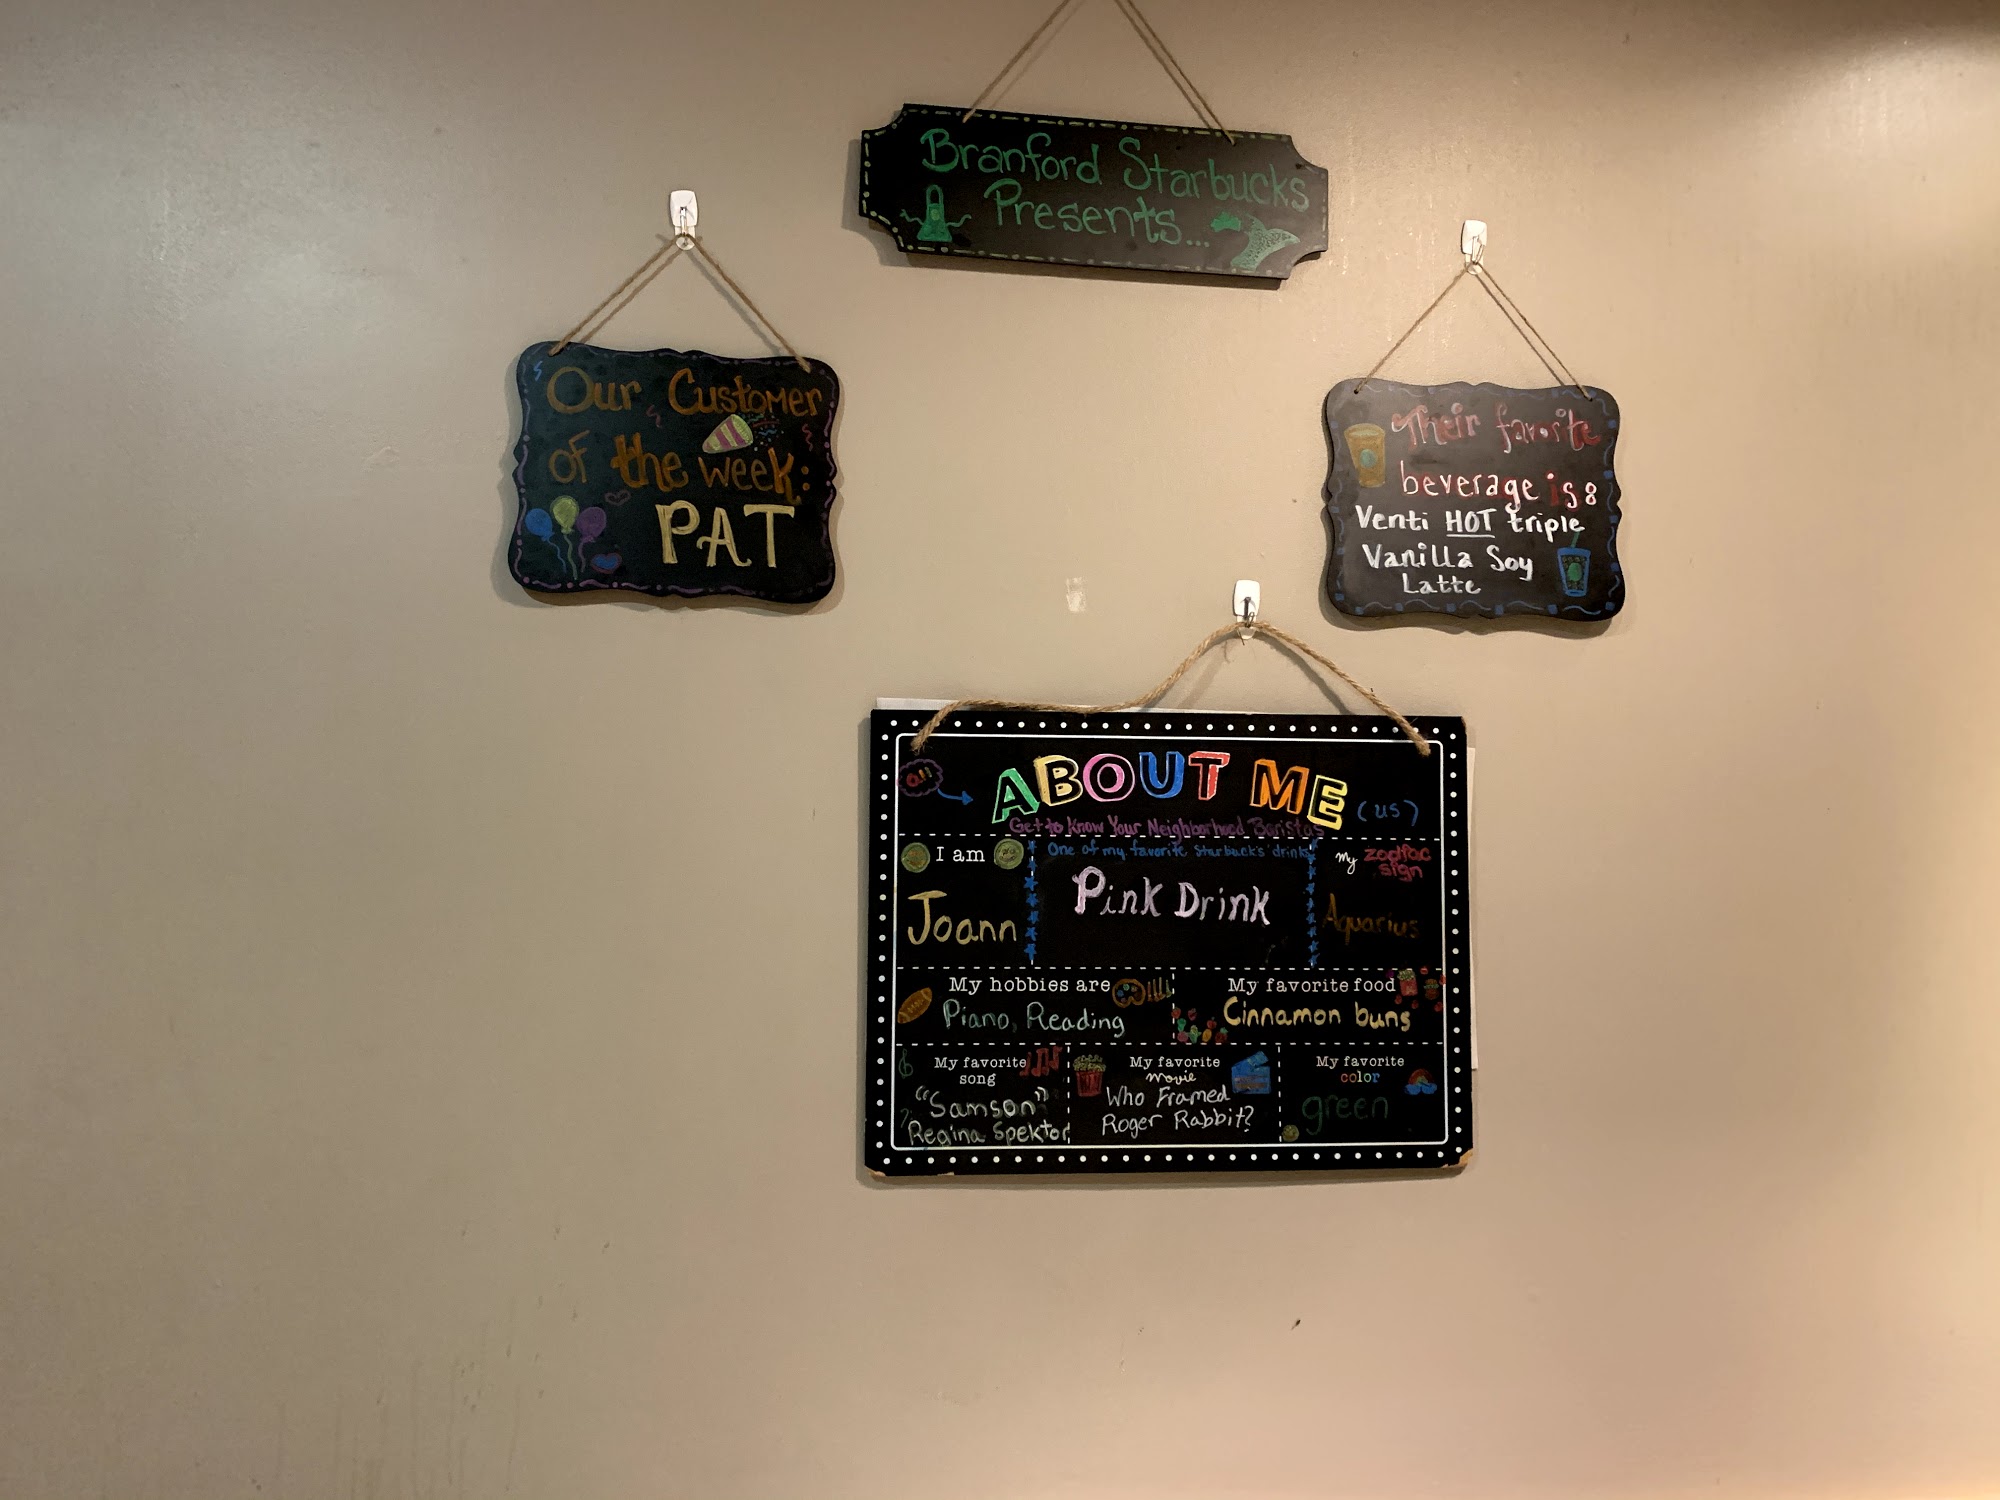 Branford Starbucks
Presents...
Our Customer
of the week:
PAT
Their favorite
beverage is:
Venti HOT triple
Vanilla Soy
Latte
all
ABOUT ME (us)
Get to Know Your Neighborhood Baristas
I am
Joann
One of my favorite Starbuck's drinks
Pink Drink
My zodiac
sign
Aquarius
My hobbies are
Piano, Reading
My favorite food
Cinnamon buns
My favorite
song
"Samson"
Regina Spektor
My favorite
movie
Who Framed
Roger Rabbit?
My favorite
color
green